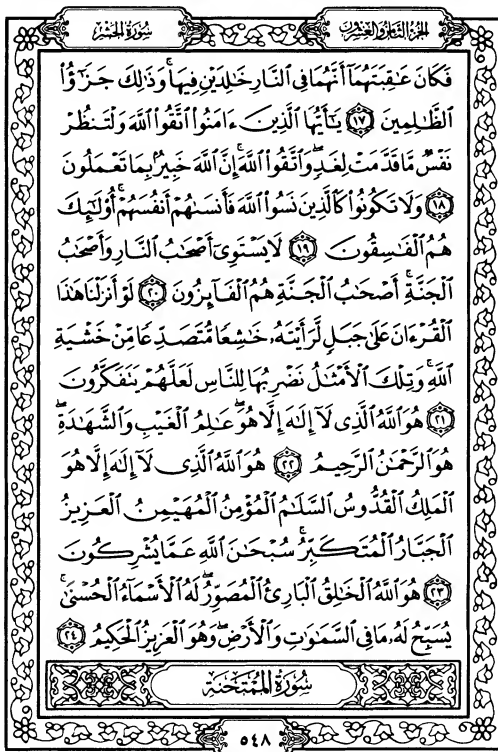 الجزء الثامن والعشرون
سورة الحشر
فَكَانَ عَٰقِبَتَهُمَآ أَنَّهُمَا فِى ٱلنَّارِ خَٰلِدَيْنِ فِيهَا ۚ وَذَٰلِكَ جَزَٰٓؤُا۟
ٱلظَّٰلِمِينَ ١٧ يَٰٓأَيُّهَا ٱلَّذِينَ ءَامَنُوا۟ ٱتَّقُوا۟ ٱللَّهَ وَلْتَنظُرْ
نَفْسٌ مَّا قَدَّمَتْ لِغَدٍ ۖ وَٱتَّقُوا۟ ٱللَّهَ ۚ إِنَّ ٱللَّهَ خَبِيرٌۢ بِمَا تَعْمَلُونَ
١٨ وَلَا تَكُونُوا۟ كَٱلَّذِينَ نَسُوا۟ ٱللَّهَ فَأَنسَىٰهُمْ أَنفُسَهُمْ ۚ أُو۟لَٰٓئِكَ
هُمُ ٱلْفَٰسِقُونَ ١٩ لَا يَسْتَوِىٓ أَصْحَٰبُ ٱلنَّارِ وَأَصْحَٰبُ
ٱلْجَنَّةِ ۚ أَصْحَٰبُ ٱلْجَنَّةِ هُمُ ٱلْفَآئِزُونَ ٢٠ لَوْ أَنزَلْنَا هَٰذَا
ٱلْقُرْءَانَ عَلَىٰ جَبَلٍ لَّرَأَيْتَهُۥ خَٰشِعًا مُّتَصَدِّعًا مِّنْ خَشْيَةِ
ٱللَّهِ ۚ وَتِلْكَ ٱلْأَمْثَٰلُ نَضْرِبُهَا لِلنَّاسِ لَعَلَّهُمْ يَتَفَكَّرُونَ
٢١ هُوَ ٱللَّهُ ٱلَّذِى لَآ إِلَٰهَ إِلَّا هُوَ ۖ عَٰلِمُ ٱلْغَيْبِ وَٱلشَّهَٰدَةِ ۖ
هُوَ ٱلرَّحْمَٰنُ ٱلرَّحِيمُ ٢٢ هُوَ ٱللَّهُ ٱلَّذِى لَآ إِلَٰهَ إِلَّا هُوَ
ٱلْمَلِكُ ٱلْقُدُّوسُ ٱلسَّلَٰمُ ٱلْمُؤْمِنُ ٱلْمُهَيْمِنُ ٱلْعَزِيزُ
ٱلْجَبَّارُ ٱلْمُتَكَبِّرُ ۚ سُبْحَٰنَ ٱللَّهِ عَمَّا يُشْرِكُونَ
٢٣ هُوَ ٱللَّهُ ٱلْخَٰلِقُ ٱلْبَارِئُ ٱلْمُصَوِّرُ ۖ لَهُ ٱلْأَسْمَآءُ ٱلْحُسْنَىٰ ۚ
يُسَبِّحُ لَهُۥ مَا فِى ٱلسَّمَٰوَٰتِ وَٱلْأَرْضِ ۖ وَهُوَ ٱلْعَزِيزُ ٱلْحَكِيمُ ٢٤
سورة الممتحنة
٥٤٨